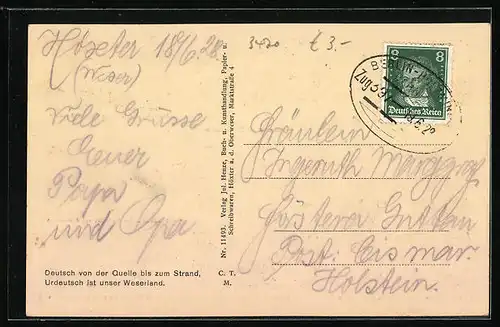 Höxter 18/6.28
(Weser)
Viele Grüsse
Euer
Papa
und Opa
Deutsch von der Quelle bis zum Strand,
Urdeutsch ist unser Weserland.
C. T.
M.
Nr. 11493. Verlag Jul. Henze, Buch- u. Kunsthandlung, Papier- u.
Schreibwaren, Höxter a. d. Oberweser, Marktstraße 4
3420
£ 3.-
8 8
Deutsches Reich
Zug
Fräulein
Ingeruth Marggraf
Försterei Guttau
Post Cismar
Holstein.